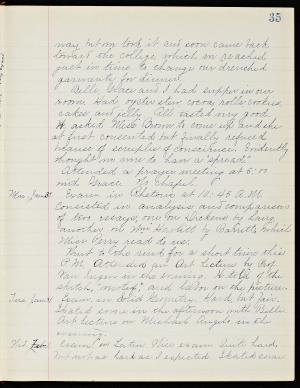 35
way but on took it and soon came back
toward the college which we reached
just in time to change our drenched
garments for dinner.
Belle, Grace and I had supper in our
room. Had oyster stew, cocoa, rolls, cookies,
cakes and jelly. All tasted very good.
We asked Miss to come up and she
at first consented but finally refused
because of scruples of conscience. Evidently
thought we were to have a "spread."
Attended a prayer meeting at 5:00
and Grace chapel.
Mon, Jan 30. Exam. in Rhetoric at 10:45 A.M.
Consisted in analysis and comparisons
of two essays, one on Dickens by Lang,
another on Wm Hazlitt by Birrell, which
Miss Perry read to us.
Went to the rink for a short time this
P.M. Attended an Art Lecture by Prof.
Van Ingen in the evening. He told of the
sketch, "motif," and labor on the picture.
Tues, Jan 31 Exam. in Solid Geometry. Hard, but fair.
Skated some in the afternoon with Belle.
Art Lecture on Michael Angelo in the
evening.
Wed. Feb 1 Exam. in Latin Prose exam. Quite hard,
but not as hard as I expected. Skated some